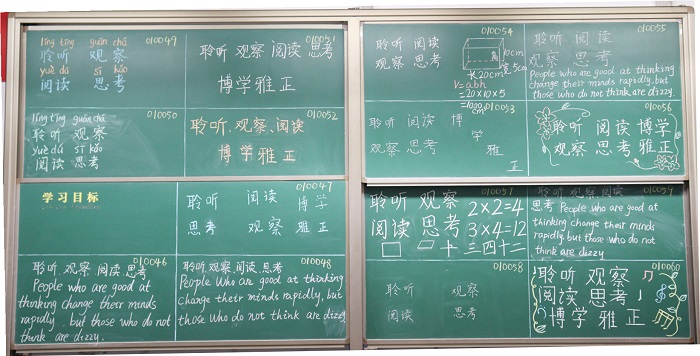 líng tīng guān chá 010049
聆听 观察
yuè dú sī kǎo
阅读 思考
010051
聆听 观察 阅读 思考
博学雅正
líng tīng guān chá 010050
聆听 观察
yuè dú sī kǎo
阅读 思考
010052
聆听、观察、阅读
博学雅正
学习目标
010047
聆听 阅读 博学
思考 观察 雅正
010046
聆听 观察 阅读 思考
People who are good at
thinking change their minds
rapidly, but those who do not
think are dizzy.
010048
聆听、观察、阅读、思考
People Who are good at thinking
change their minds rapidly, but
those who do not think are dizzy
010054
聆听 阅读
观察 思考
10cm
宽5cm
长20cm
V=abh
=20×10×5
=1000cm
010055
聆听 阅读
观察 思考
People who are good at thinking
change their minds rapidly, but
those who do not think are dizzy
010053
聆听 阅读 博
学
观察 思考 雅
正
010056
聆听 阅读 博学
观察 思考 雅正
010057
聆听 观察 2×2=4
阅读 思考 3×4=12
三四十二
聆听 观察 阅读
思考 People who are good at
thinking change their minds
rapidly, but those who do not
think are dizzy
010058
聆听 观察
阅读 思考
010060
聆听 观察
阅读 思考
博学 雅正